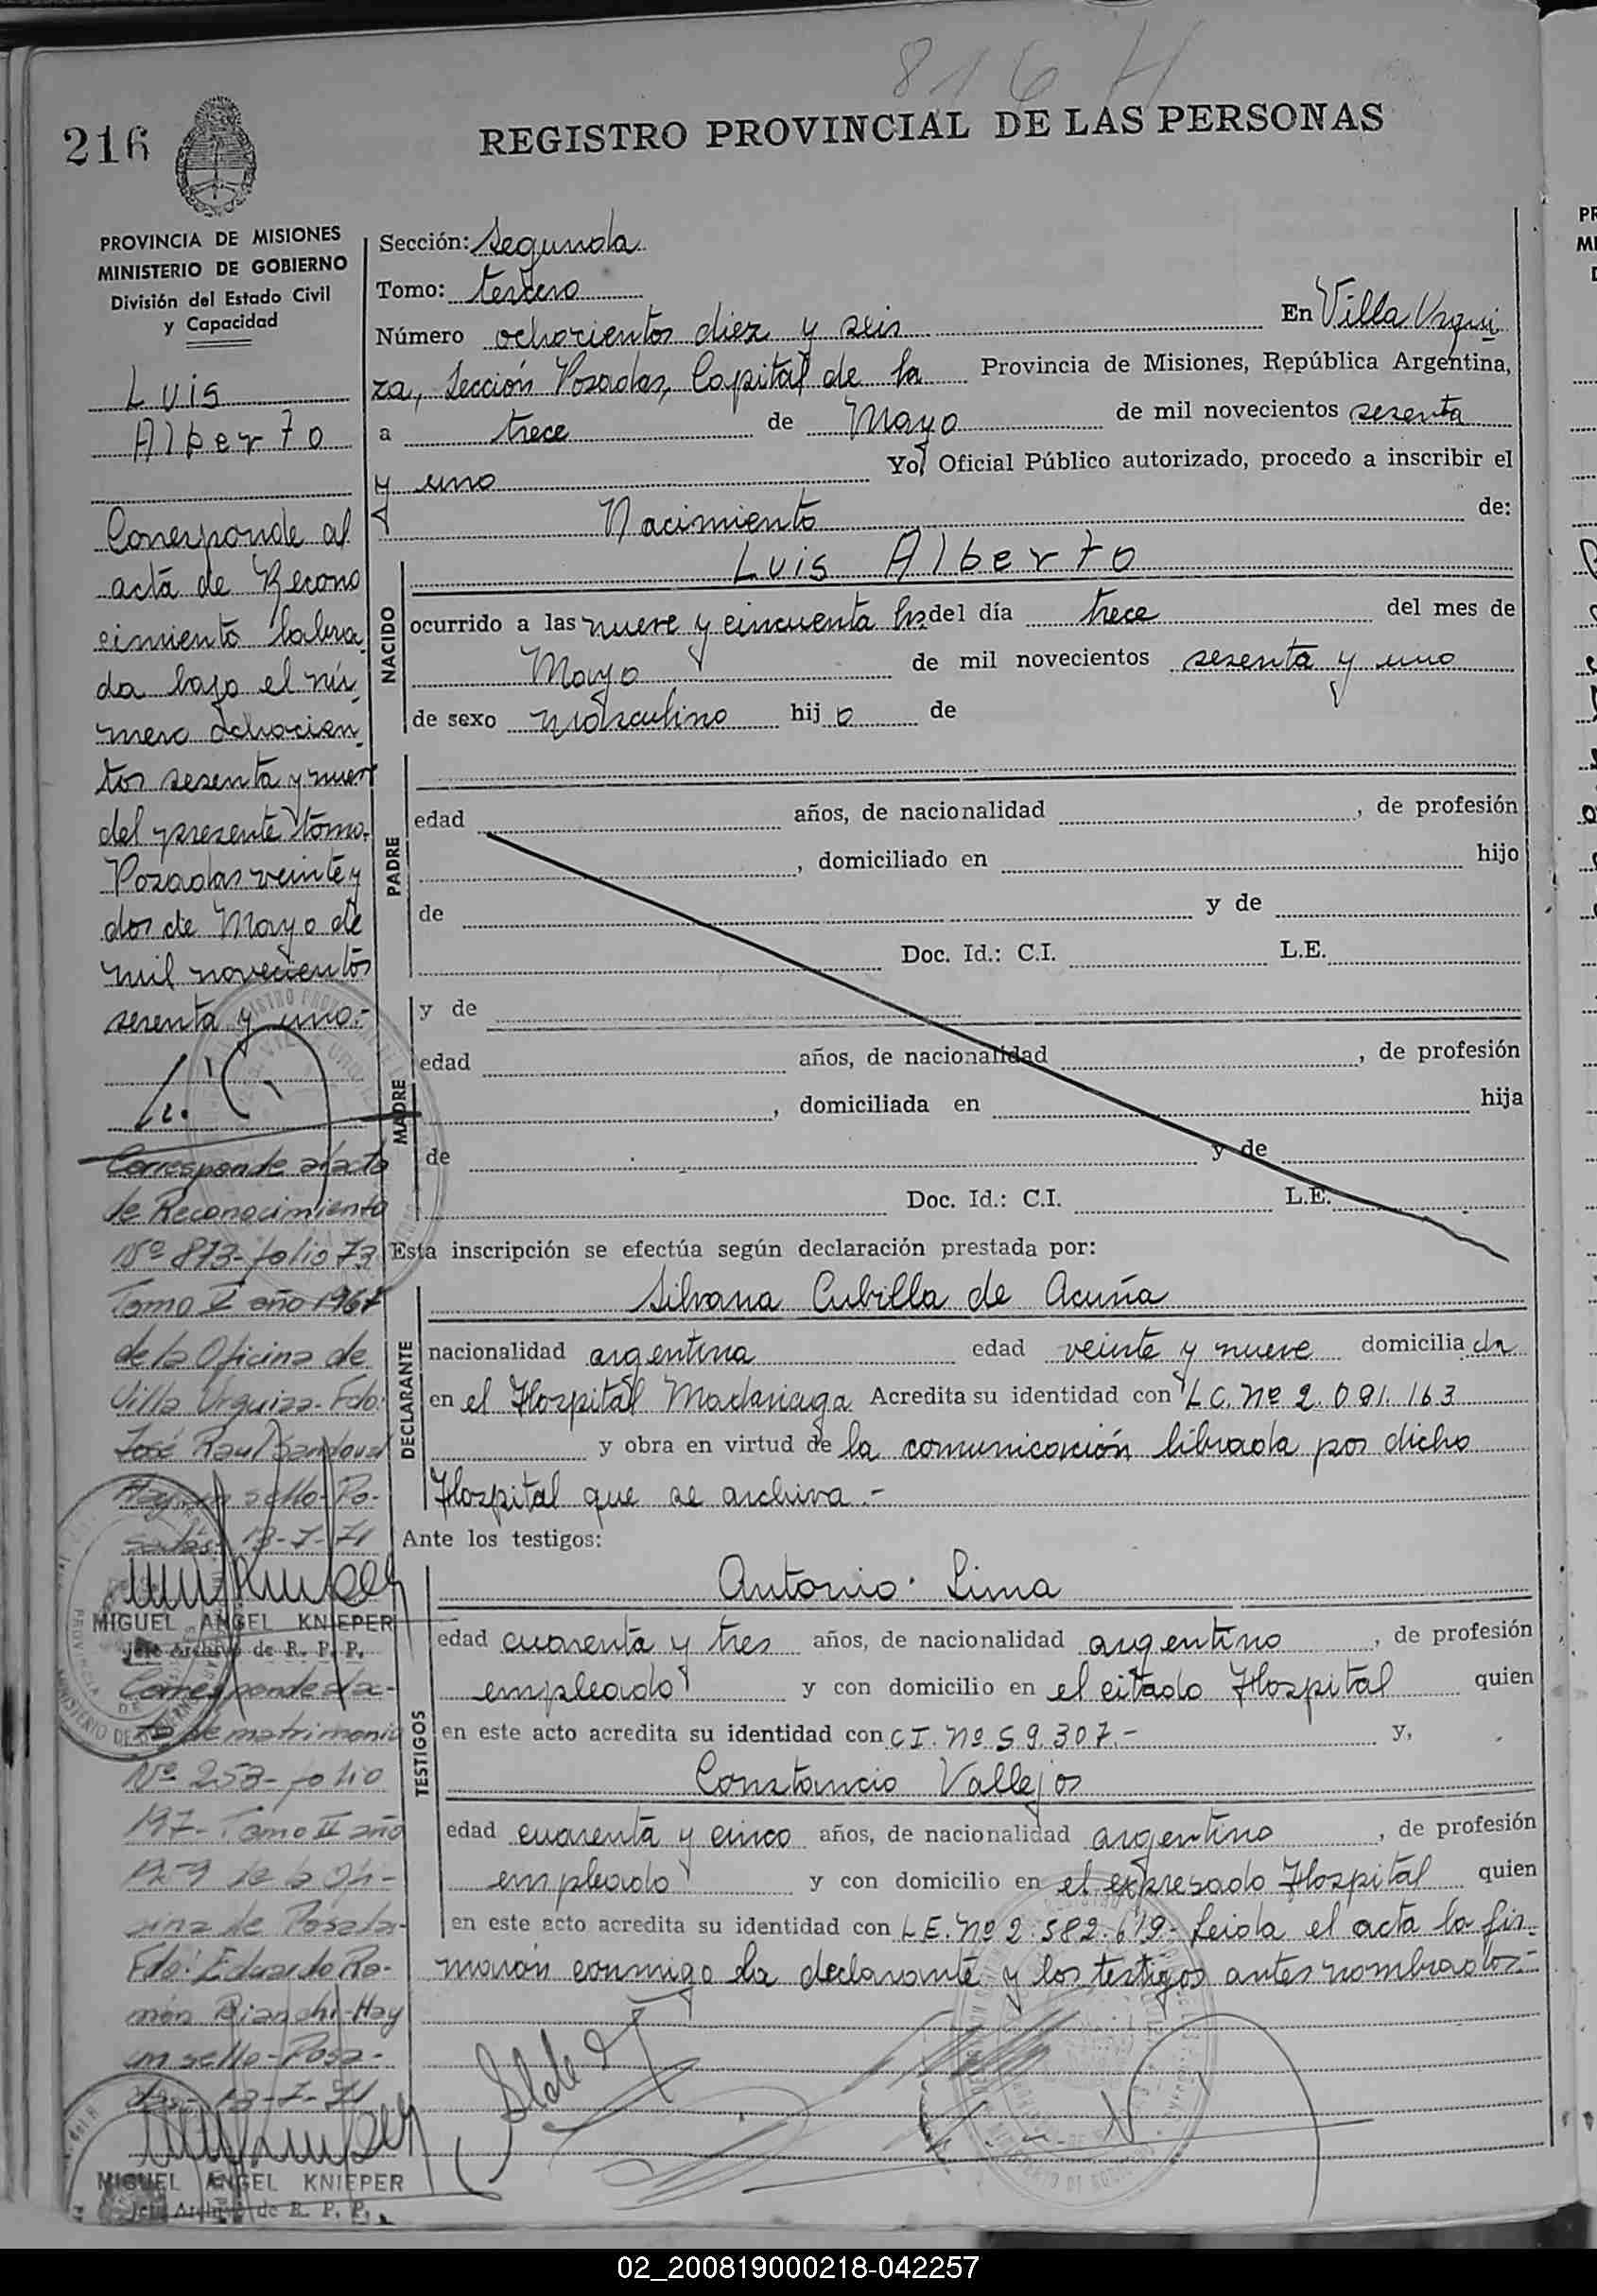 816 H
216
REGISTRO PROVINCIAL DE LAS PERSONAS
PROVINCIA DE MISIONES
MINISTERIO DE GOBIERNO
División del Estado Civil
y Capacidad
Luis
Alberto
Corresponde al
acta de Recono
cimiento labra
da bajo el nú
mero ochocien
tos sesenta y nueve
del presente tomo.
Posadas veinte y
dos de Mayo de
mil novecientos
sesenta y uno.-
Corresponde al acta
de Reconocimiento
Nº 873- folio 73
Tomo V año 1967
de la Oficina de
Villa Urquiza- Fdo:
José Raul Sandoval
Hay un sello- Po-
sadas 13-7-71
MIGUEL ANGEL KNIEPER
Jefe Archivo de R. P. P.
Corresponde al ac-
ta de matrimonio
Nº 253- folio
197- Tomo II año
de la Ofi-
cina de Posadas-
Fdo: Eduardo Ra-
món Bianchi- Hay
un sello- Posa-
das 13-7-71
MIGUEL ANGEL KNIEPER
Jefe Archivo de R. P. P.
Sección: Segunda
Tomo: tercero
Número ochocientos diez y seis En Villa Urqui
za, Sección Posadas, Capital de la Provincia de Misiones, República Argentina,
a trece de Mayo de mil novecientos sesenta
y uno Yo, Oficial Público autorizado, procedo a inscribir el
Nacimiento de:
NACIDO
Luis Alberto
ocurrido a las nueve y cincuenta hs del día trece del mes de
Mayo de mil novecientos sesenta y uno
de sexo masculino hijo de
PADRE
edad años, de nacionalidad , de profesión
, domiciliado en hijo
de y de
Doc. Id.: C.I. L.E.
MADRE
y de
edad años, de nacionalidad , de profesión
, domiciliada en hija
de y de
Doc. Id.: C.I. L.E.
Esta inscripción se efectúa según declaración prestada por:
DECLARANTE
Silvana Cubilla de Acuña
nacionalidad argentina edad veinte y nueve domiciliada
en el Hospital Madariaga Acredita su identidad con L C. Nº 2.091.163
y obra en virtud de la comunicación librada por dicho
Hospital que se archiva.-
Ante los testigos:
TESTIGOS
Antonio Lima
edad cuarenta y tres años, de nacionalidad argentino , de profesión
empleado y con domicilio en el citado Hospital quien
en este acto acredita su identidad con C I. Nº 59.307.- y,
Constancio Vallejos
edad cuarenta y cinco años, de nacionalidad argentino , de profesión
empleado y con domicilio en el expresado Hospital quien
en este acto acredita su identidad con L E. Nº 2.582.619- Leida el acta la fir
maron conmigo la declarante y los testigos antes nombrados.-
02_200819000218-042257